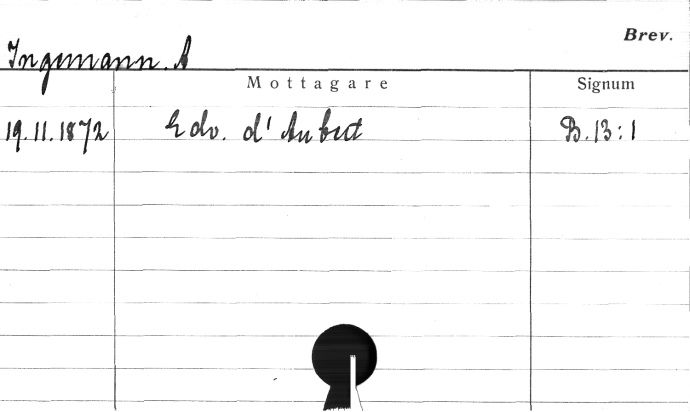 Brev.
Ingemann. A
Mottagare Signum
19.11.1872 Edv. d'Aubert B.13:1